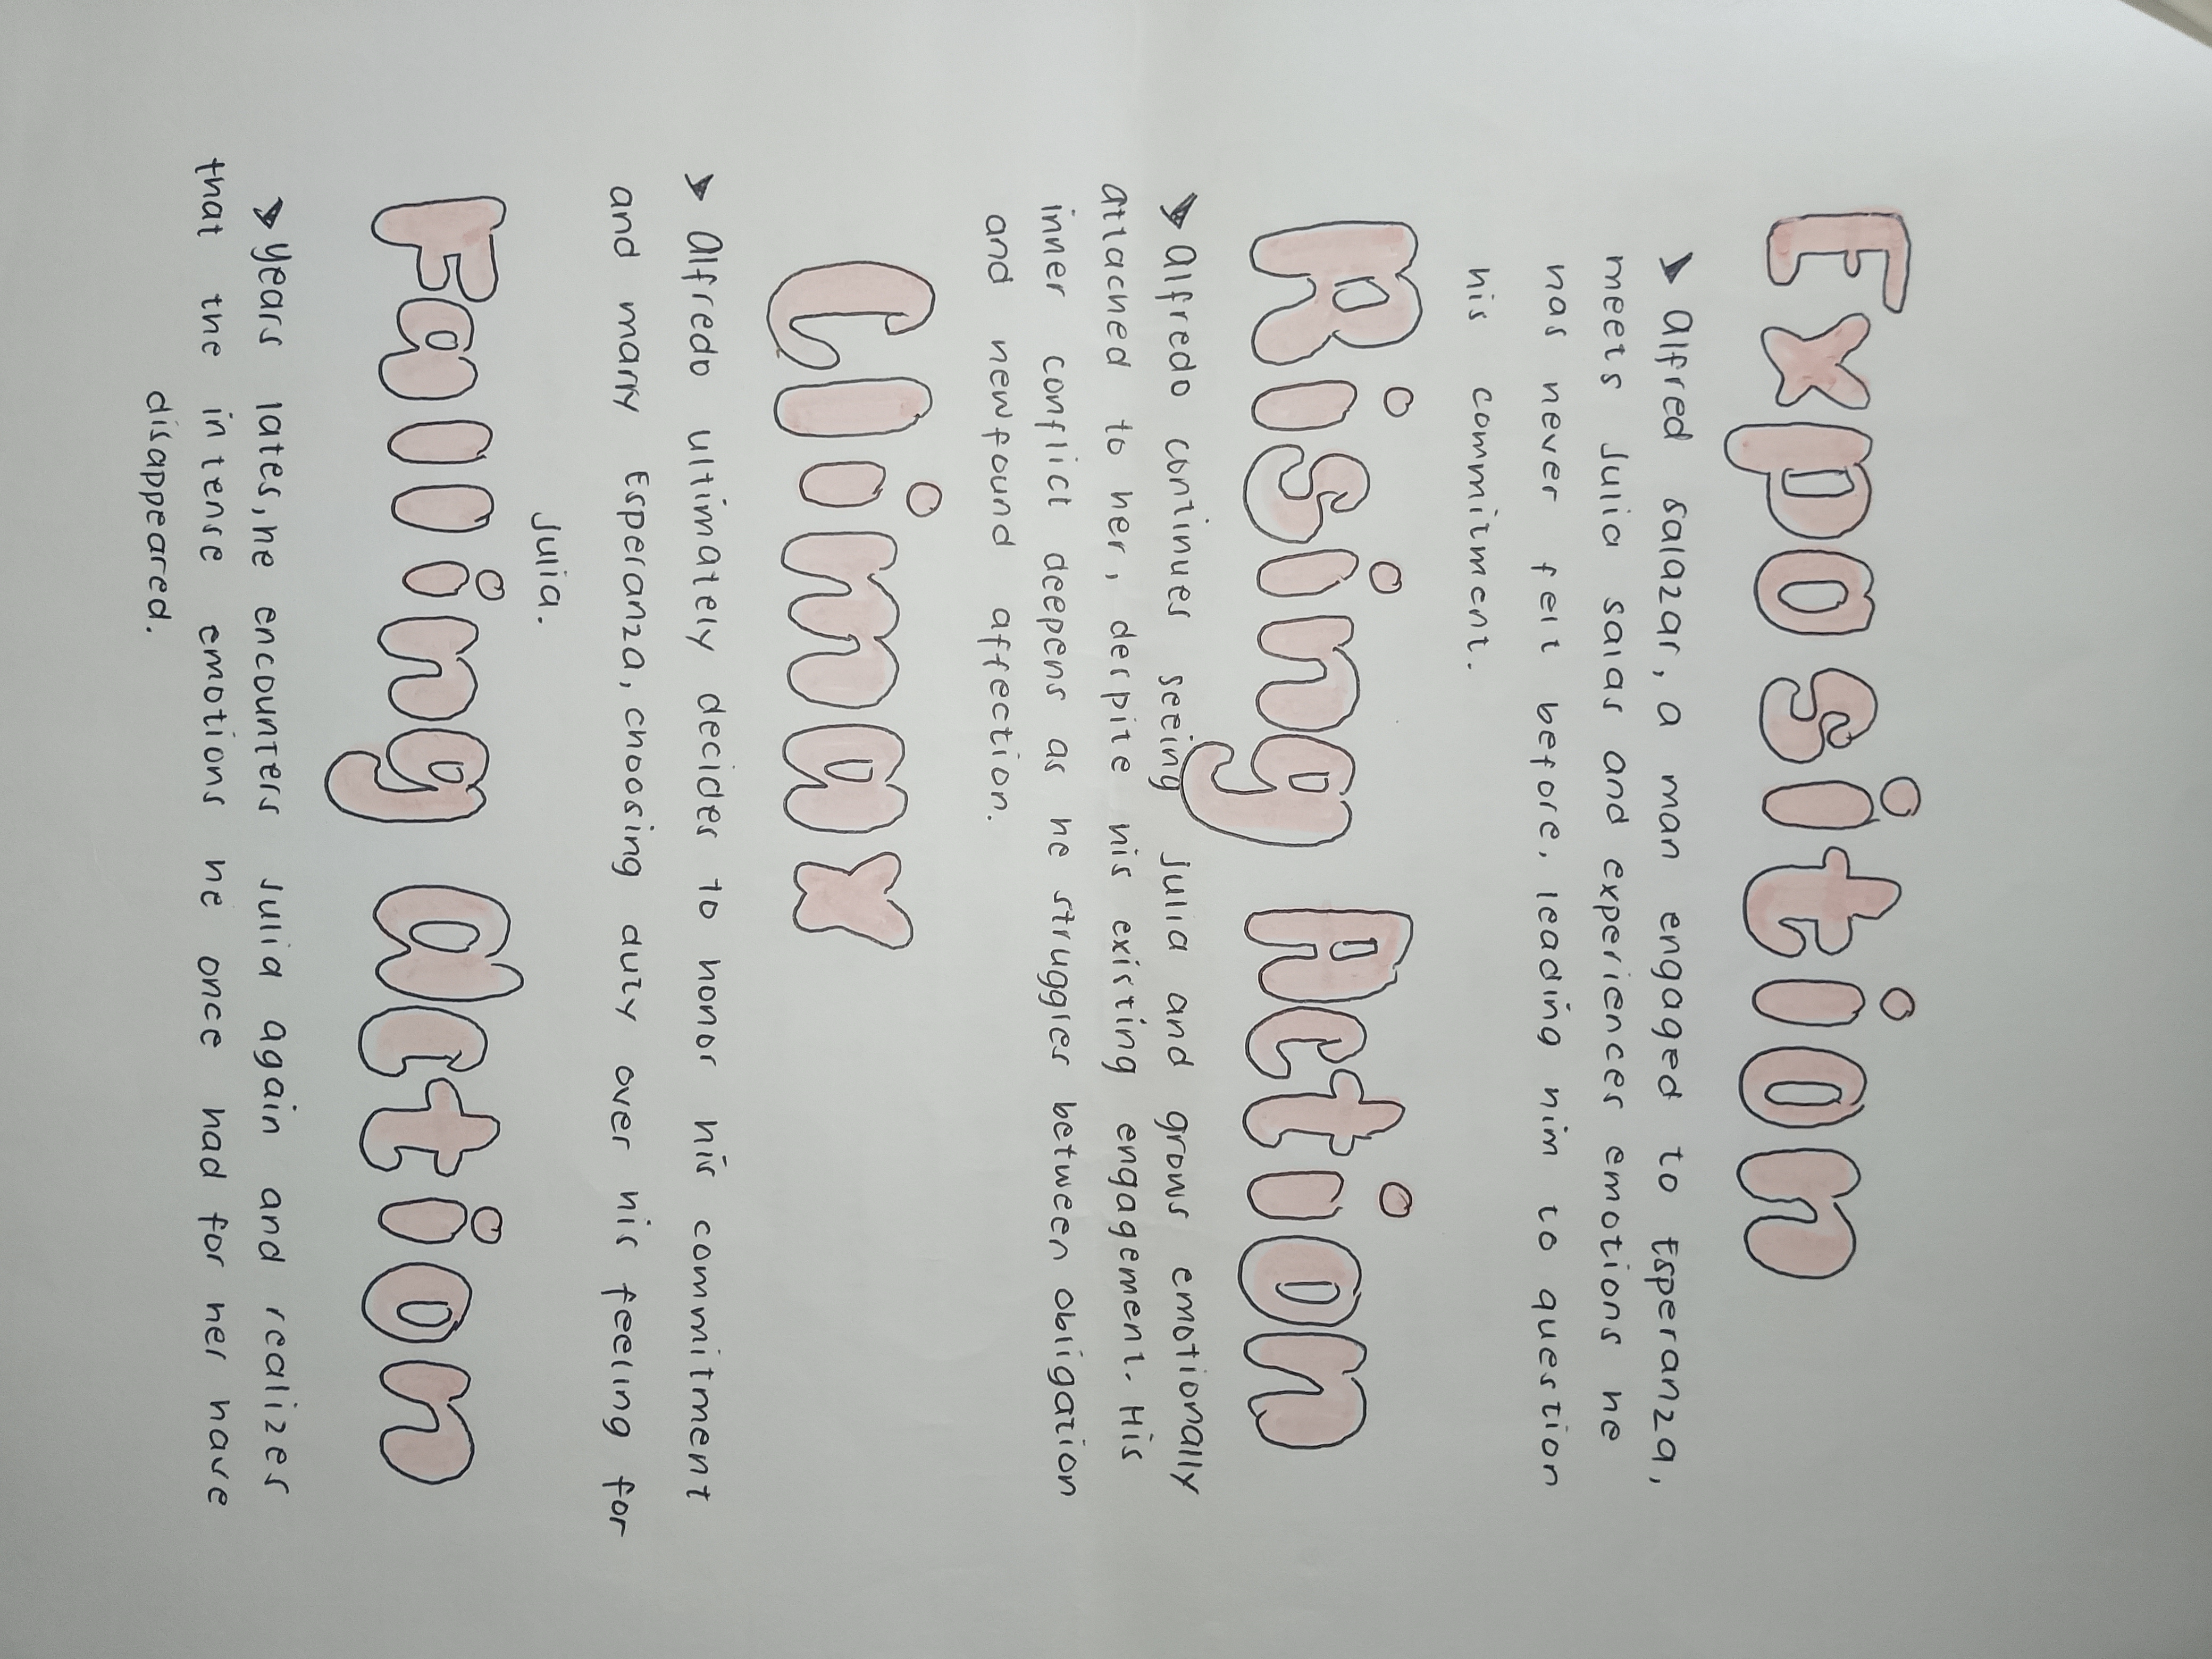 Exposition
➤ Alfred salazar, a man engaged to Esperanza,
meets Julia salas and experiences emotions he
has never felt before, leading him to question
his commitment.
Rising Action
➤ Alfredo continues seeing Julia and grows emotionally
attached to her, despite his existing engagement. His
inner conflict deepens as he struggles between obligation
and newfound affection.
Climax
➤ Alfredo ultimately decides to honor his commitment
and marry Esperanza, choosing duty over his feeling for
Julia.
Falling Action
➤ years lates, he encounters Julia again and realizes
that the intense emotions he once had for her have
disappeared.